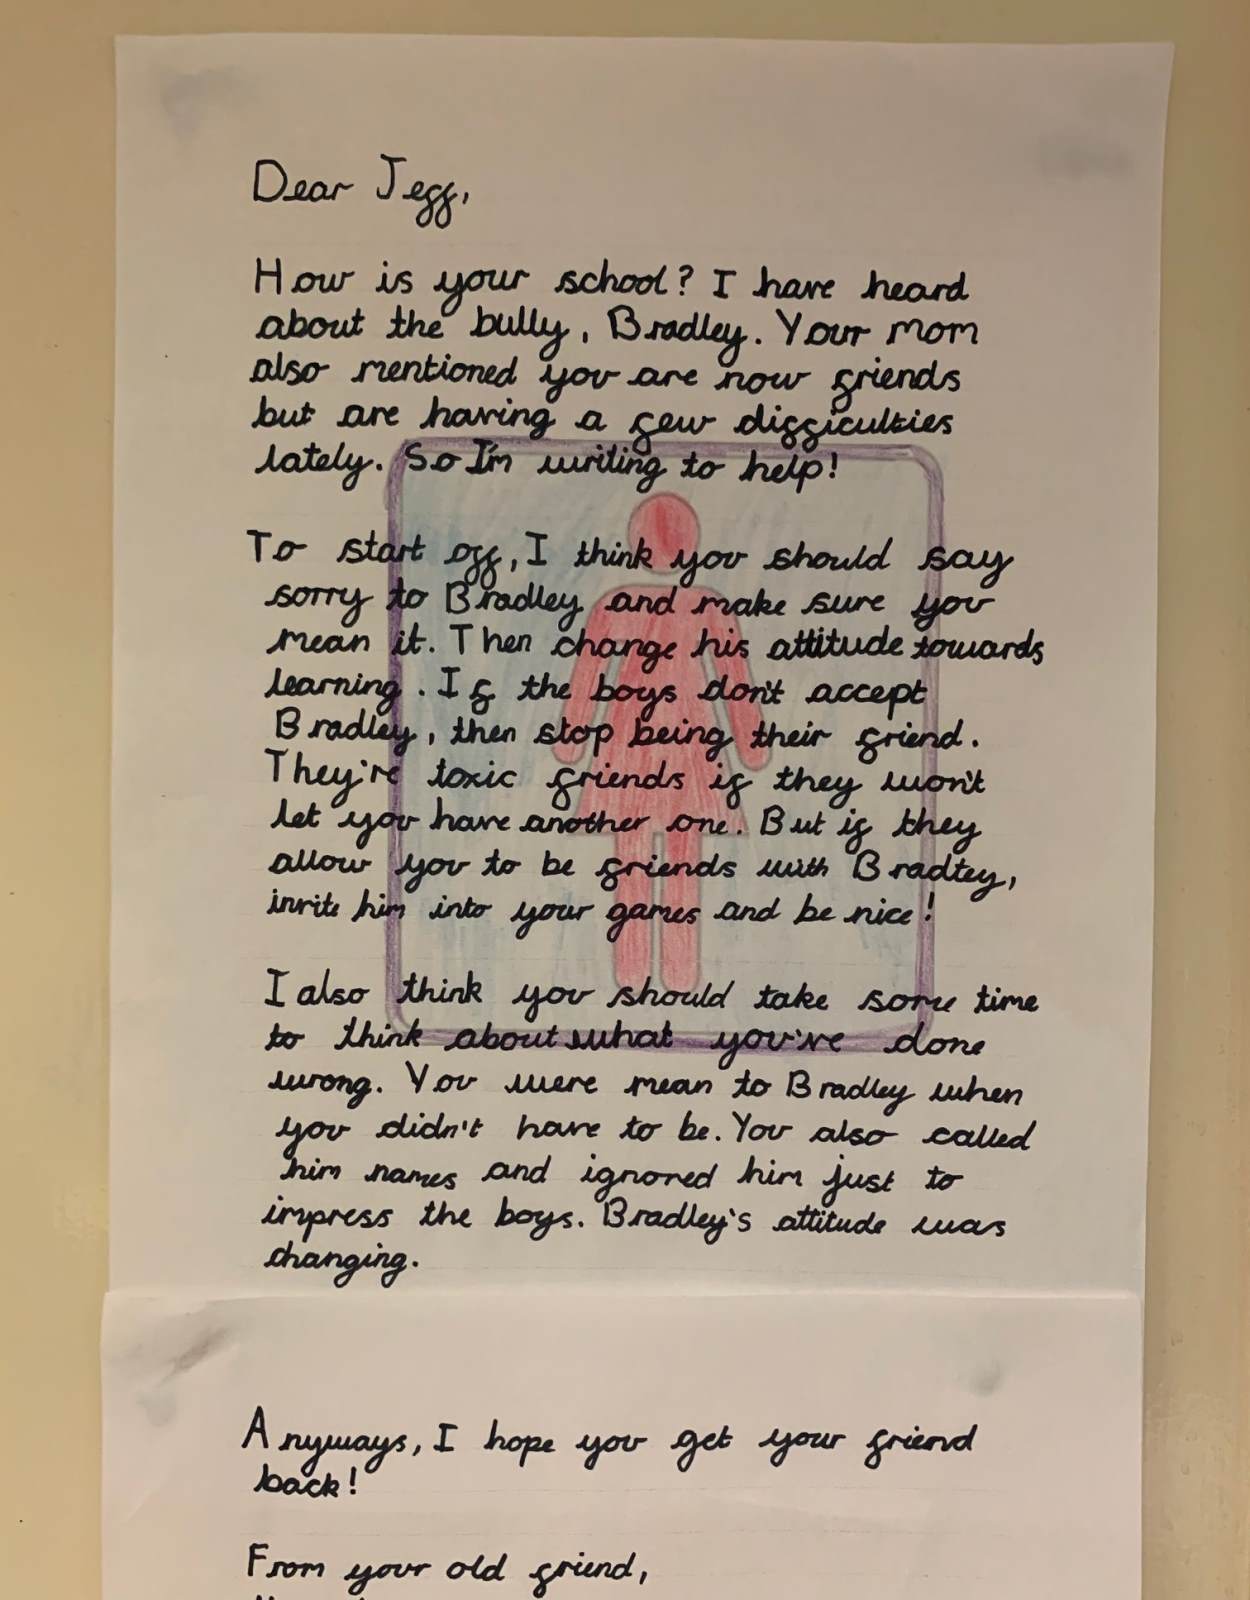 Dear Jeff,
How is your school? I have heard
about the bully, Bradley. Your mom
also mentioned you are now friends
but are having a few difficulties
lately. So I'm writing to help!
To start off, I think you should say
sorry to Bradley and make sure you
mean it. Then change his attitude towards
learning. If the boys don't accept
Bradley, then stop being their friend.
They're toxic friends if they won't
let you have another one. But if they
allow you to be friends with Bradtey,
invite him into your games and be nice!
I also think you should take some time
to think about what you've done
wrong. You were mean to Bradley when
you didn't have to be. You also called
him names and ignored him just to
impress the boys. Bradley's attitude was
changing.
Anyways, I hope you get your friend
back!
From your old friend,